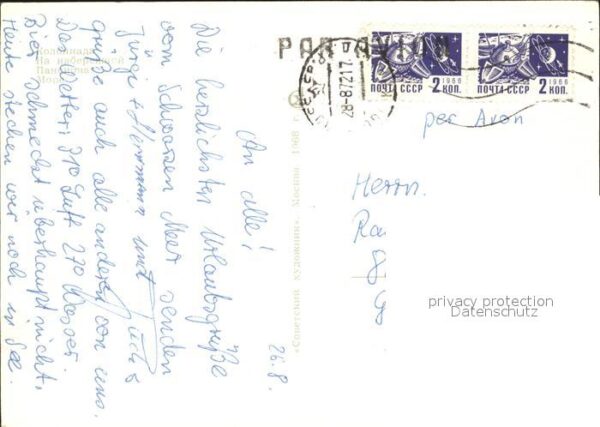 Колоннада
На набережной
PAR AVION
28-8721
2 КОП.
ПОЧТА СССР
1966
2 КОП.
ПОЧТА СССР
1966
per Avion
Herrn
privacy protection
Datenschutz
«Советский художник». Москва 1968
26.8.
An alle!
Die herzlichsten Urlaubsgrüße
vom Schwarzen Meer senden
Jürge + Hermann und
grüße auch alle anderen von uns.
Das Wetter: 31° Luft 27° Wasser.
Bier schmeckt überhaupt nicht,
Heute stechen wir noch in See.